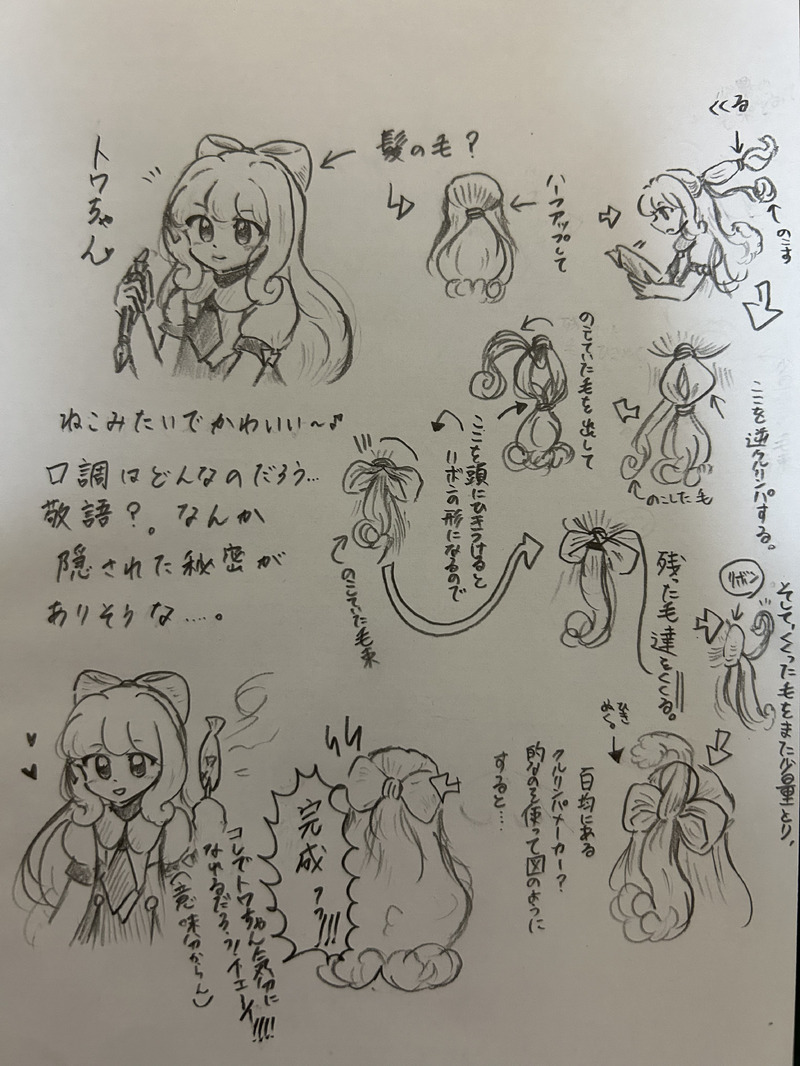 トワちゃん
髪の毛？
ハーフアップして
くくる
のこす
ここを逆クルリンパする。
のこした毛
のこていた毛を出して
ここを頭にひきつけると
リボンの形になるので
のこていた毛束
残った毛達をくくる。
リボン
そして、くくった毛をまた少量とり、
ひき
ぬく。
百均にある
クルリンパメーカー？
的なのを使って図のように
すると…
完成ッッ!!!
コレでトワちゃん気分に
なれるだろうッ！イエーイ!!!!
(意味分からん)
ねこみたいでかわいい〜♪
口調はどんなのだろう…
敬語？。なんか
隠された秘密が
ありそうな……。